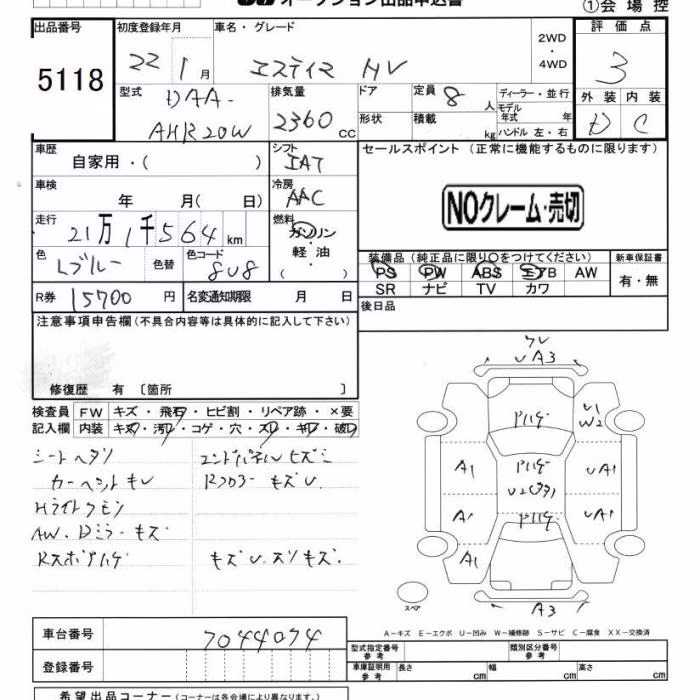 オークション出品申込書
①会場控
出品番号
5118
初度登録年月
22 1月
車名・グレード
エスティマ HV
2WD
・
4WD
評価点
3
型式
DAA-
AHR20W
排気量
2360 cc
ドア
形状
定員 8 人
積載 kg
ディーラー・並行
モデル年式 年
ハンドル 左・右
外装 内装
D C
車歴
自家用・( )
シフト
IAT
セールスポイント (正常に機能するものに限ります)
車検
年 月( 日)
冷房
AAC
NOクレーム・売切
走行
21万1千564 km
燃料
ガソリン
・
軽油
( )
色
Lブルー
色替
色コード
8U8
装備品 (純正品に限り○をつけてください)
PS PW ABS エアB AW
SR ナビ TV カワ
新車保証書
有・無
R券 15700 円
名変通知期限 月 日
後日品
注意事項申告欄 (不具合内容等は具体的に記入して下さい)
修復歴 有 〔箇所 〕
検査員
記入欄
FW キズ・飛石・ヒビ割・リペア跡・×要
内装 キズ・汚れ・コゲ・穴・スレ・キレ・破レ
シートヘタリ
カーペットキレ
Hライトクモリ
AW.Dミラーキズ
Rスポアハゲ
エンドパネルヒズミ
RフロアーキズU
キズU.スリキズ.
ワレ
UA3
Pハゲ
U1
W2
A1
Pハゲ
UA1
A1
Pハゲ
UA1
A1
A3
スペア
A-キズ E-エクボ U-凹み W-補修跡 S-サビ C-腐食 XX-交換済
車台番号 7044074
登録番号
型式指定番号
参考
類別区分番号
参考
車庫証明用
参考
長さ cm 幅 cm 高さ cm
希望出品コーナー (コーナーは各会場により異なります。)